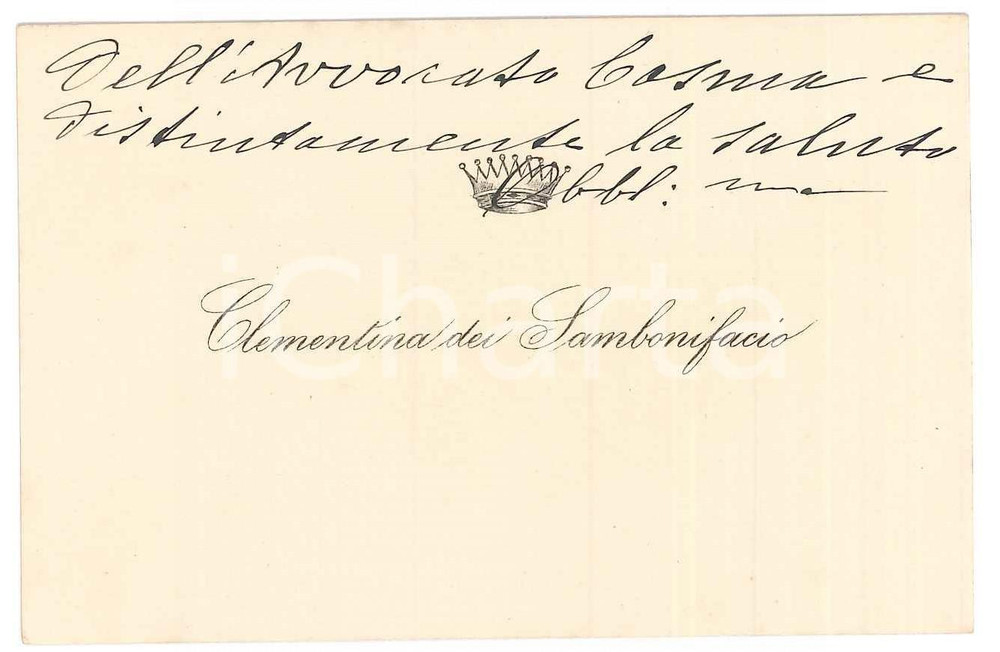 Dell'Avvocato Cosma e
distintamente la saluto
Obbl: ma
Clementina dei Sambonifacio
iCharta